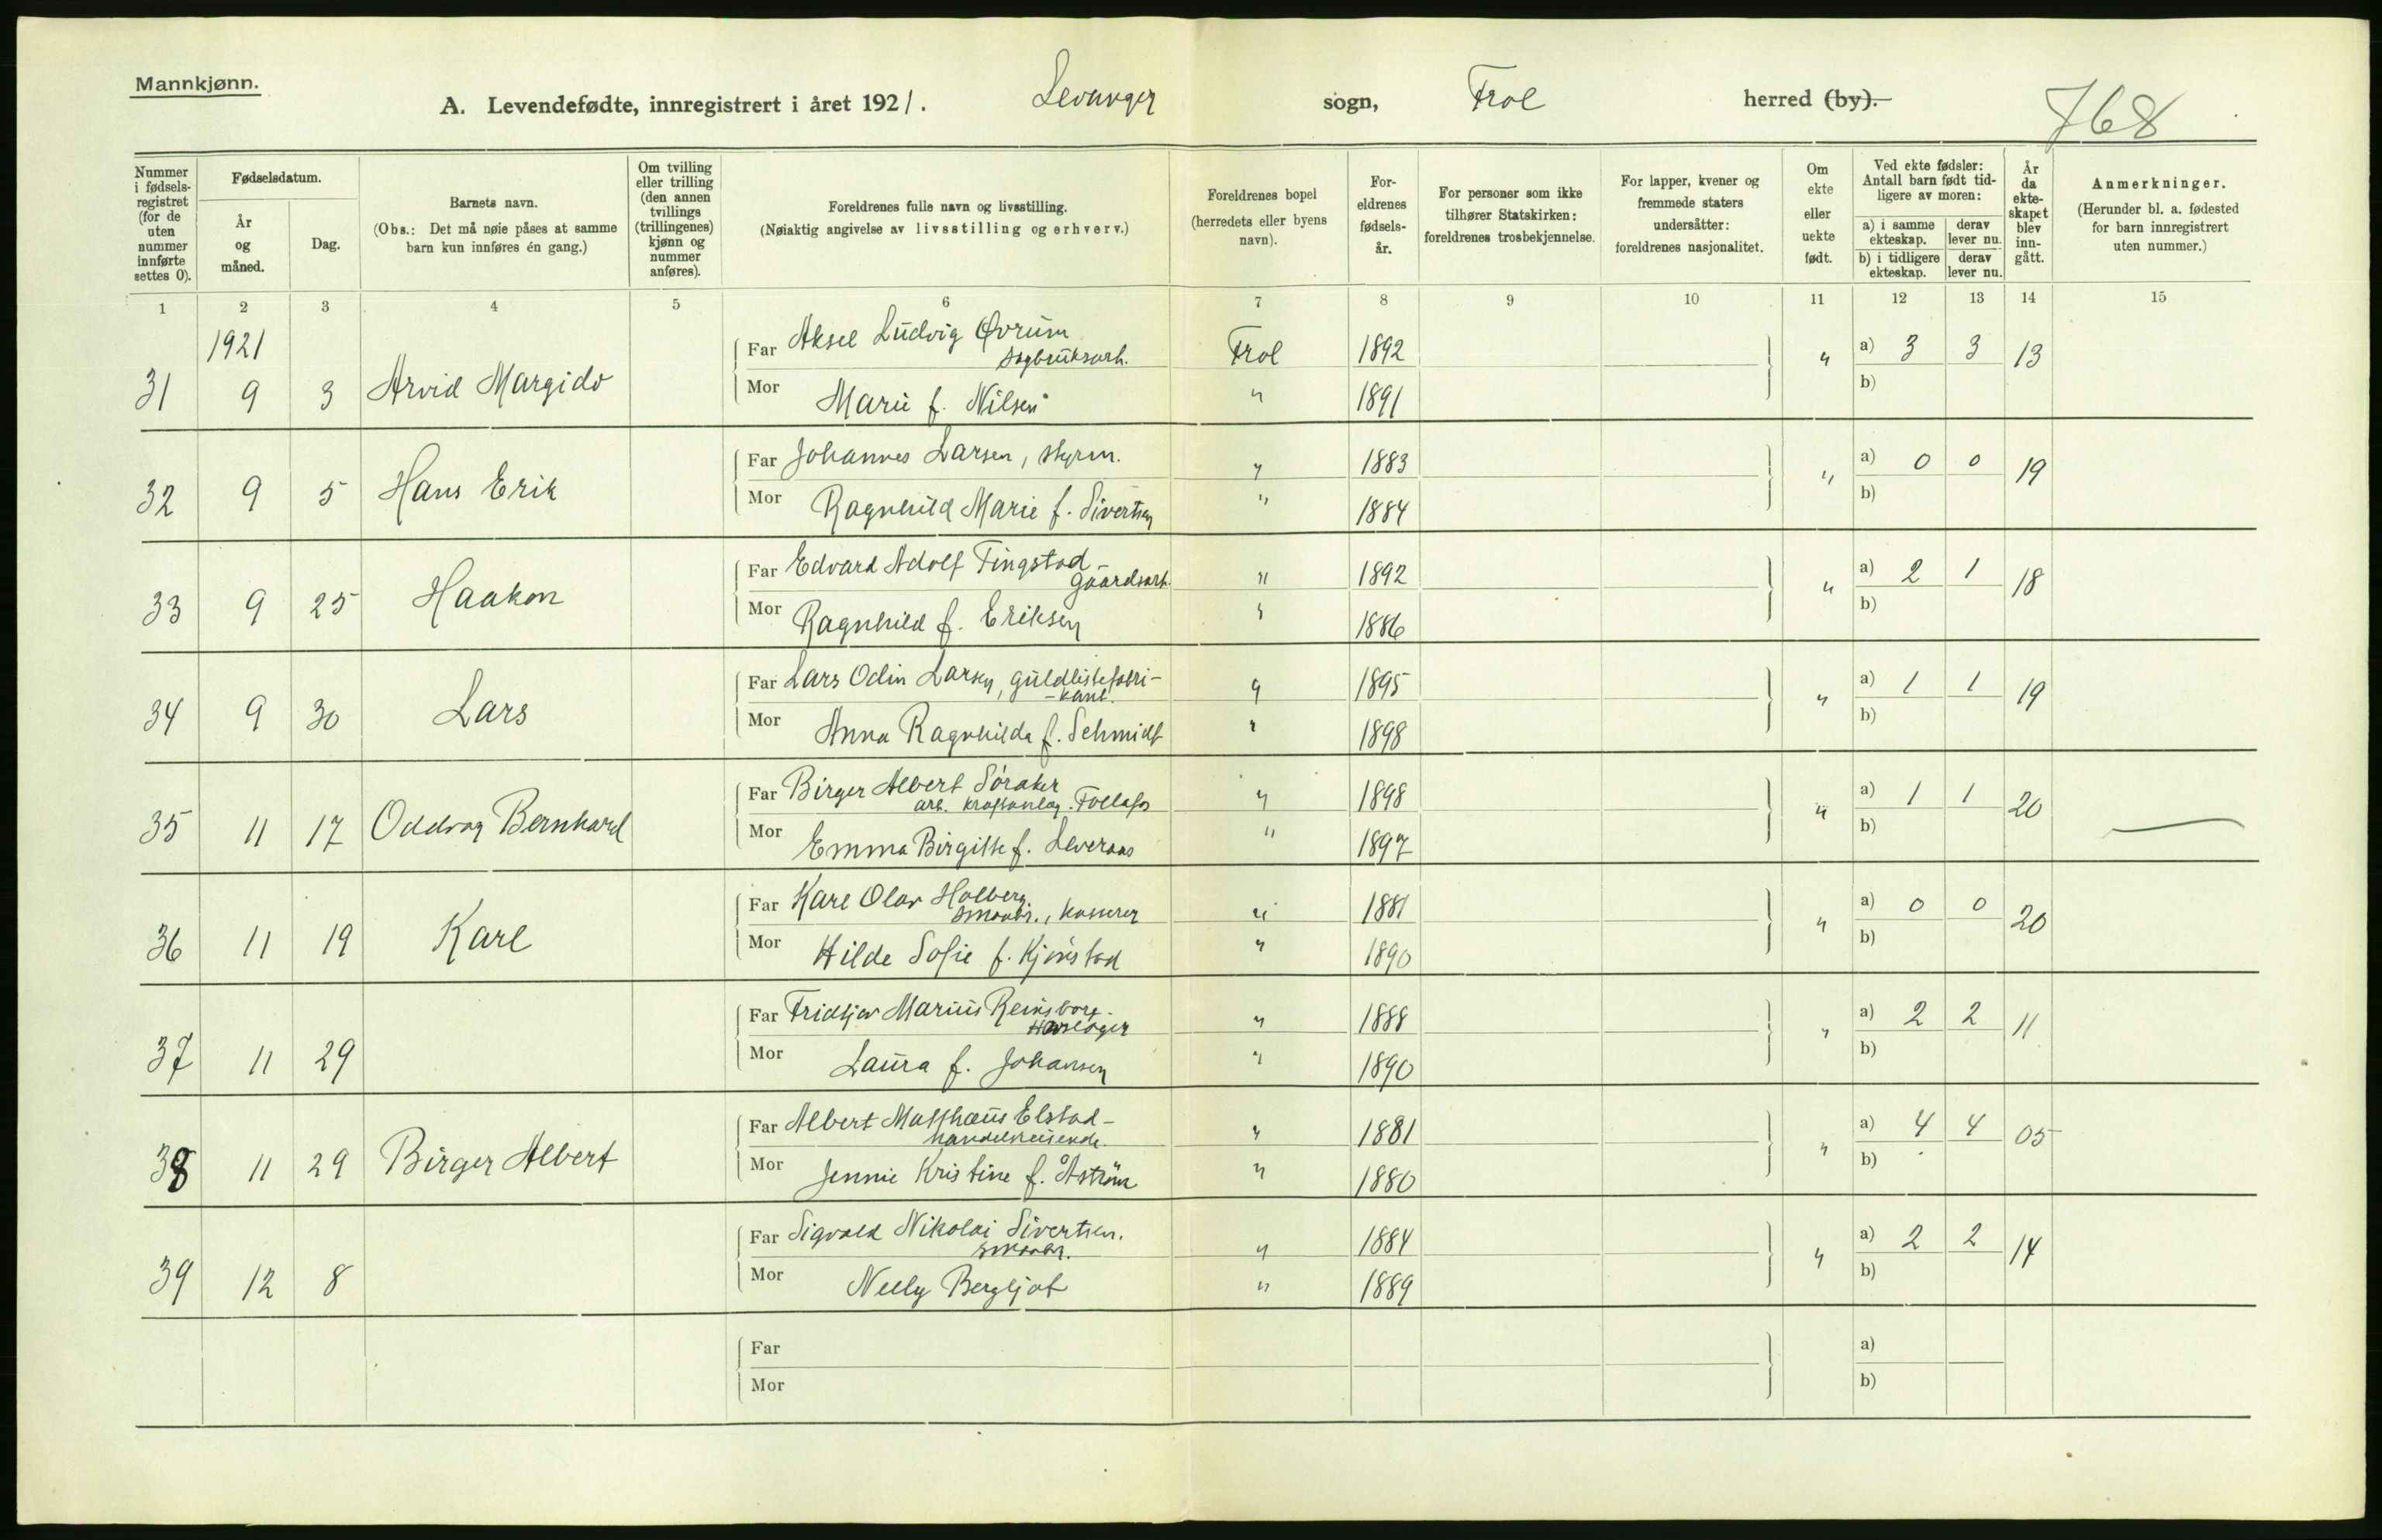 Mannkjønn.
A. Levendefødte, innregistrert i året 1921. Levanger sogn, Frol herred (by).
768
Nummer i fødselsregistret (for de uten nummer innførte settes 0).
Fødselsdatum.
År og måned.
Dag.
Barnets navn.
(Obs.: Det må nøie påses at samme barn kun innføres én gang.)
Om tvilling eller trilling (den annen tvillings (trillingenes) kjønn og nummer anføres).
Foreldrenes fulle navn og livsstilling.
(Nøiaktig angivelse av livsstilling og erhverv.)
Foreldrenes bopel (herredets eller byens navn).
Foreldrenes fødselsår.
For personer som ikke tilhører Statskirken: foreldrenes trosbekjennelse.
For lapper, kvener og fremmede staters undersåtter: foreldrenes nasjonalitet.
Om ekte eller uekte født.
Ved ekte fødsler: Antall barn født tidligere av moren:
a) i samme ekteskap. derav lever nu.
b) i tidligere ekteskap. derav lever nu.
År da ekteskapet blev inngått.
Anmerkninger.
(Herunder bl. a. fødested for barn innregistrert uten nummer.)
1 2 3 4 5 6 7 8 9 10 11 12 13 14 15
1921
Far Aksel Ludvig Øvrum Frol 1892 a) 3 3 13
sagbruksarb.
31 9 3 Arvid Margido
Mor Marie f. Nilsen " 1891 b)
Far Johannes Larsen, styrm. " 1883 " a) 0 0 19
32 9 5 Hans Erik
Mor Ragnhild Marie f. Sivertsen " 1884 b)
Far Edvard Adolf Tingstad - " 1892 " a) 2 1 18
Gaardsarb.
33 9 25 Haakon
Mor Ragnhild f. Eriksen " 1886 b)
Far Lars Odin Larsen, guldlistefabri- " 1895 " a) 1 1 19
-kant.
34 9 30 Lars
Mor Anna Ragnhilda f. Schmidt " 1898 b)
Far Birger Albert Søraker " 1898 " a) 1 1 20
arb. kraftanlæg. Follafos
35 11 17 Oddvar Bernhard
Mor Emma Birgitte f. Leveraas " 1897 b)
Far Karl Olav Holberg " 1881 " a) 0 0 20
smaabr., kasserer
36 11 19 Karl
Mor Hilde Sofie f. Kjønstad " 1890 b)
Far Fridtjov Marius Reinsborg. " 1888 " a) 2 2 11
37 11 29
Mor Laura f. Johansen " 1890 b)
Far Albert Matthæus Elstad - " 1881 " a) 4 4 05
handelsreisende.
38 11 29 Birger Albert
Mor Jennie Kristine f. Åström " 1880 b)
Far Sigvald Nikolai Sivertsen. " 1884 " a) 2 2 14
smaabr.
39 12 8
Mor Nelly Bergljot " 1889 b)
Far a)
Mor b)